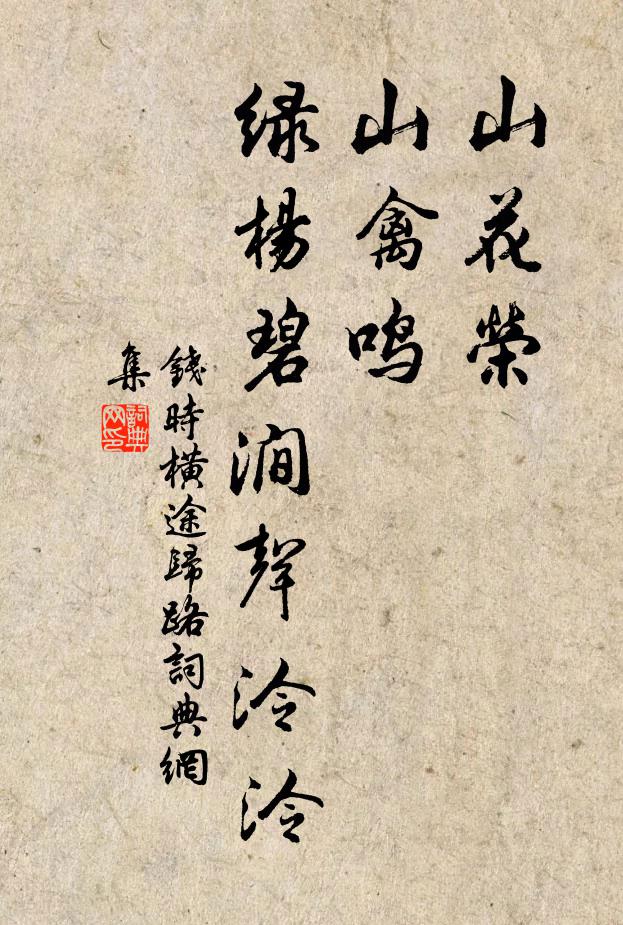 山花榮
山禽鳴
绿楊碧澗聲泠泠
錢時橫途歸路詞典網
集
詞典
网印